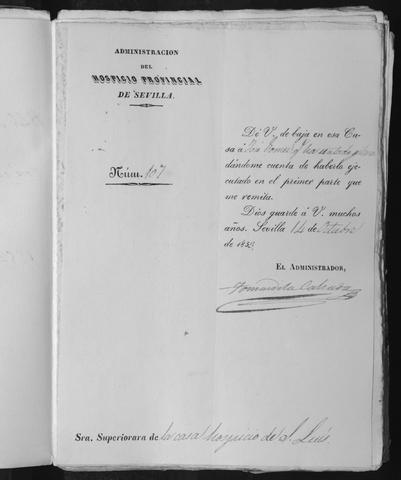 ADMINISTRACION
DEL
HOSPICIO PROVINCIAL
DE SEVILLA.
Núm. 107
Dé V. de baja en esa Ca-
sa á
dándome cuenta de haberlo eje-
cutado en el primer parte que
me remita.
Dios guarde á V. muchos
años. Sevilla 14 de Octubre
de 185
EL ADMINISTRADOR,
Tomás de la Calzada
Sra. Superiorara de la casa hospicio de S. Luis